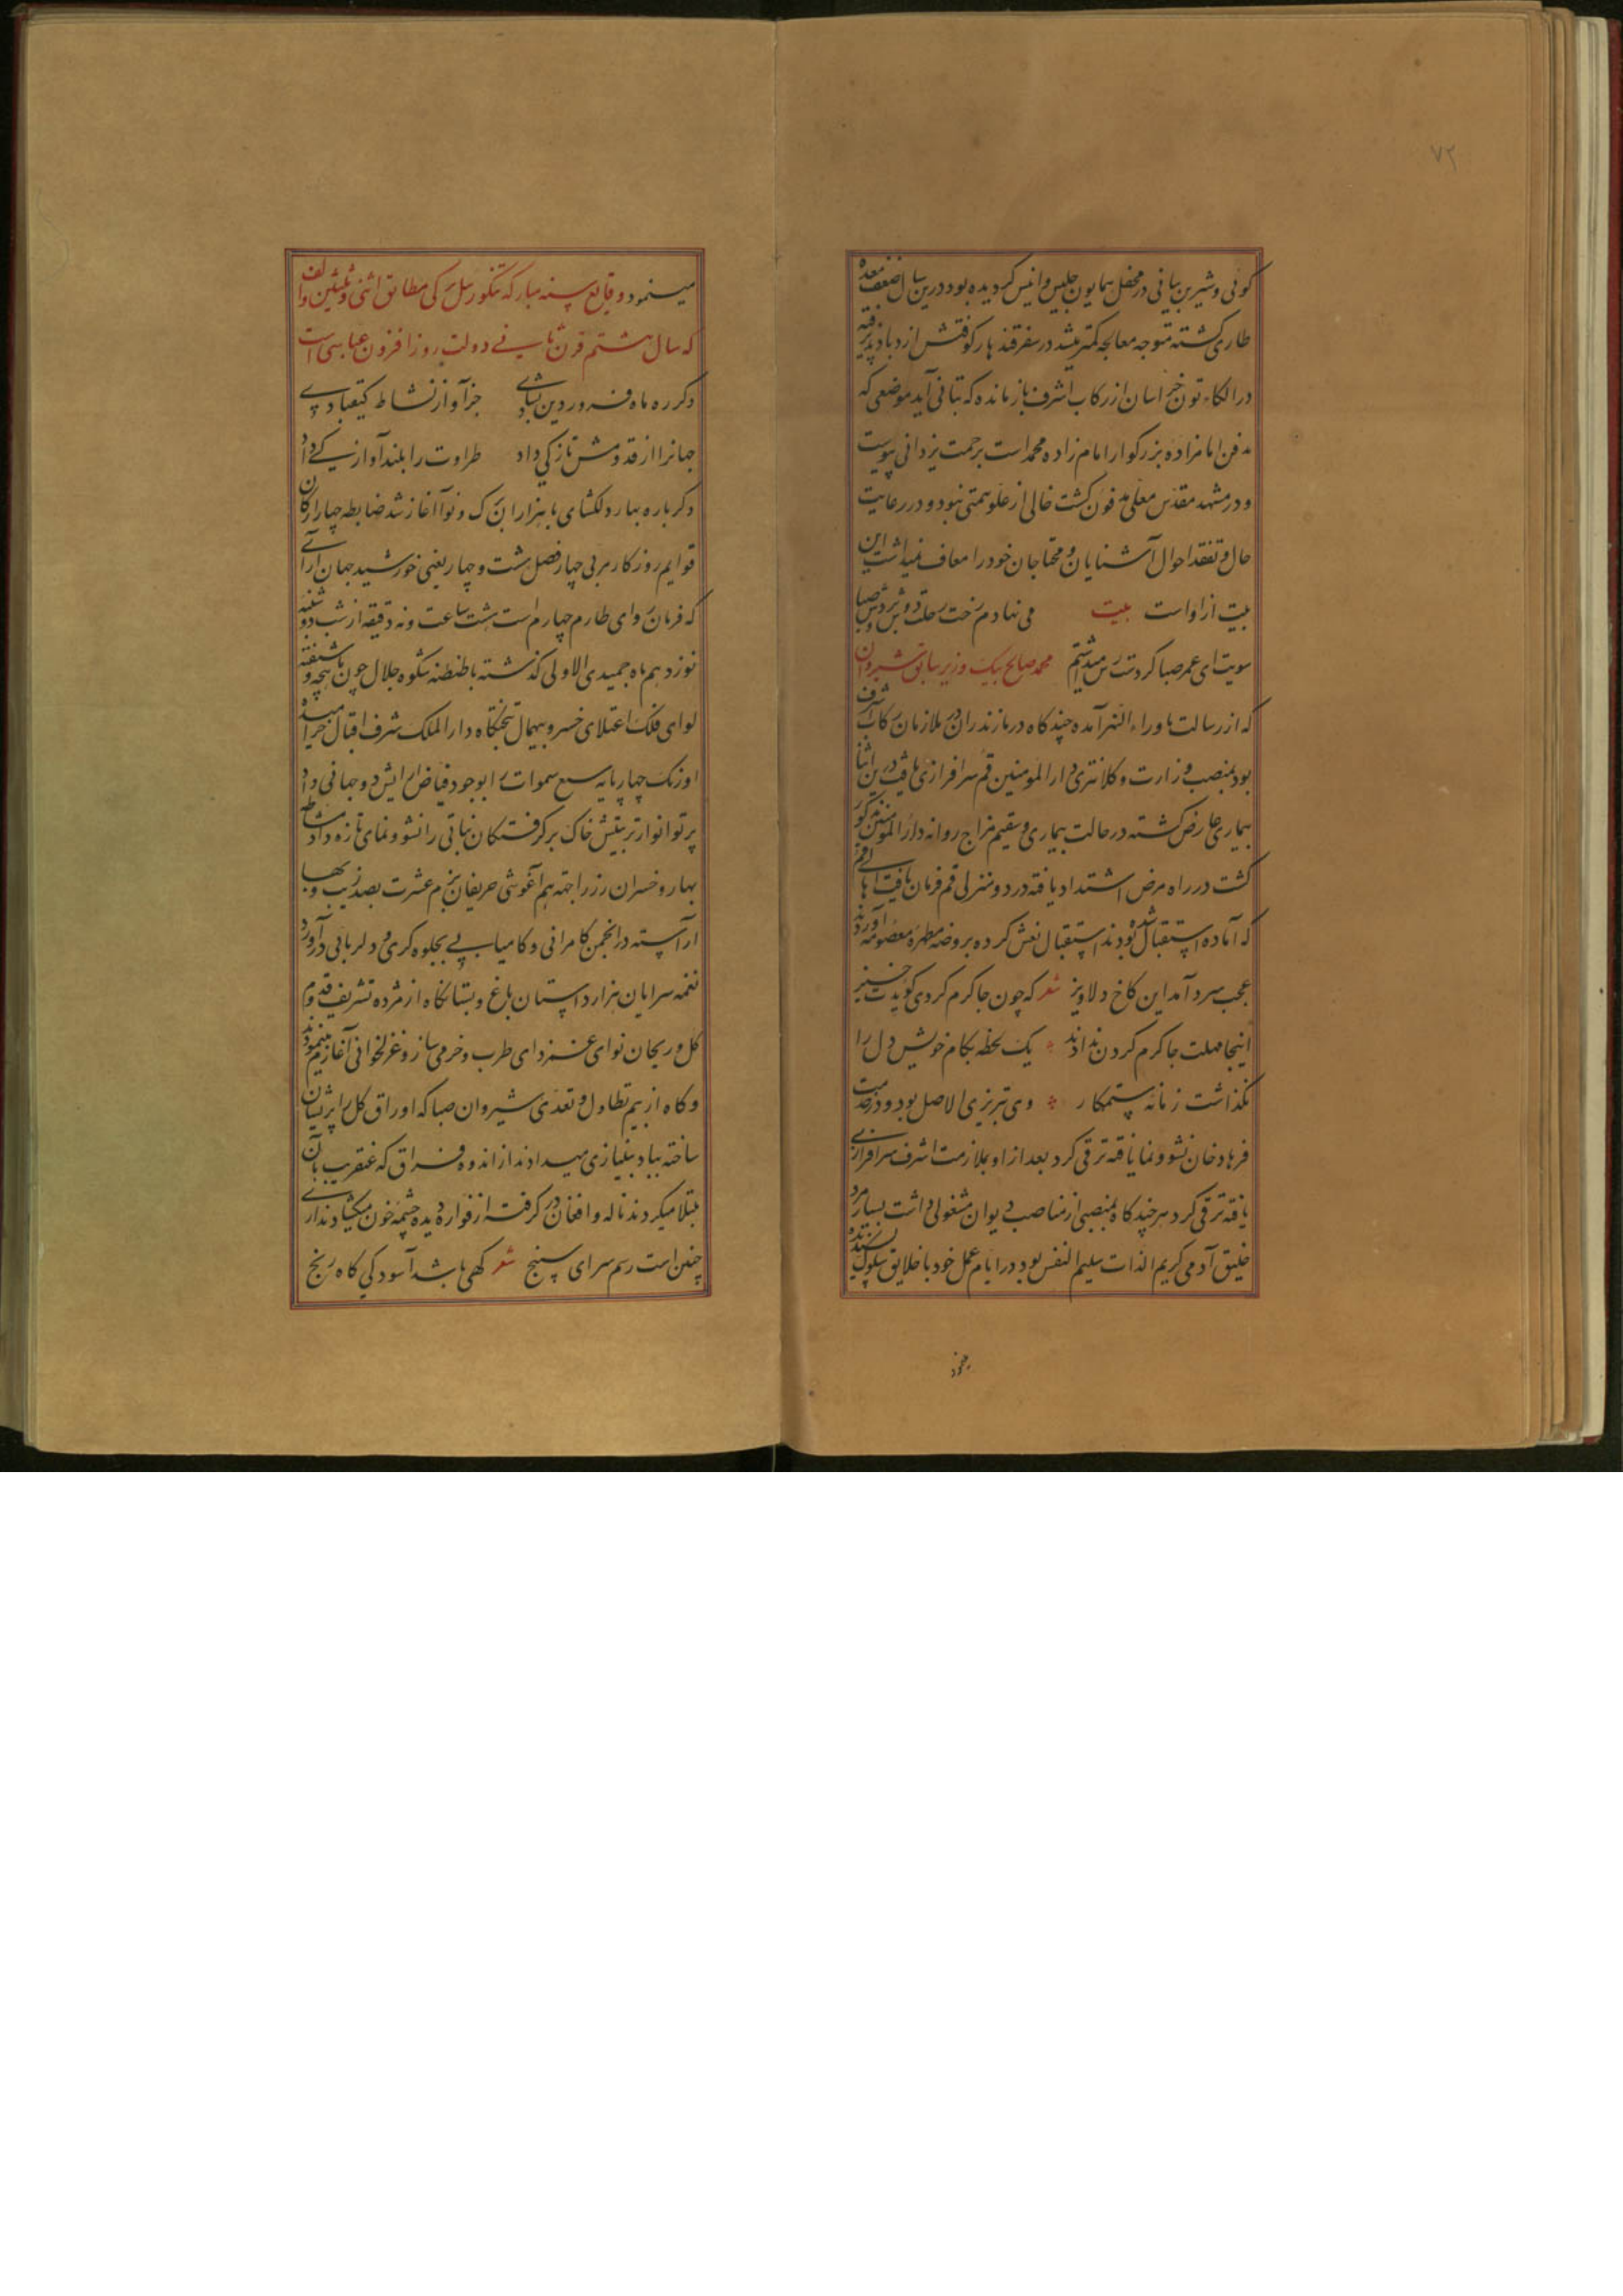 ۷۲
کوئی و شیرین بیانی در محفل همایون جلیس و انیس کردیده بود درین سال ضعف معده
طاری کشته متوجه معالجه کمتر میشد در سفر قندهار کوفتش ازدیاد پذیرفته
در الکاء تون خراسان از رکاب اشرف باز مانده که تبانی آید موضعی که
مدفن امامزاده بزرکوار امام زاده محمد است برحمت یزدانی پیوست
و در مشهد مقدس معلی مدفون کشت خالی از علو همتی نبود و در رعایت
حال و تفقد احوال آشنایان و محتاجان خود را معاف نمیداشت این
بیت از او است بیت می نهادم رخت رحلت دوش بر دوش صبا
سویت ای عمر صبا کر دسترس میداشتم محمد صالح بیک وزیر سابق شیروان
که از رسالت ماوراء النهر آمده چند کاه در مازندران در ملازمان رکاب اشرف
بود بمنصب وزارت و کلانتری دار المومنین قم سرافرازی یافت درین اثنا
بیماری عارض کشته در حالت بیماری و سقیم مزاج روانه دار المومنین مذکور
کشت در راه مرض اشتداد یافته در دو منزلی قم فرمان یافت اهالی قم
که آماده استقبال شده بودند استقبال نعش کرده بروضه مطهره معصومه آوردند
عجب سرد آمد این کاخ دلاویز شعر که چون جا کرم کردی کویدت خیز
اینجا مهلت جا کرم کردن نداد یک لحظه بکام خویش دل را
نکذاشت زمانه ستمکار وی تبریزی الاصل بود و در خدمت
فرهاد خان نشو و نما یافته ترقی کرد بعد از او بملازمت اشرف سرافرازی
یافته ترقی کرد هر چند کاه بمنصبی از مناصب دیوان مشغولی داشت بسیار مرد
خلیق آدمی کریم الذات سلیم النفس بود در ایام عمل خود با خلایق سلوک پسندیده
مینمود
مینمود وقایع سنه مبارکه تنکوزئیل ترکی مطابق اثنی و ثلثین و الف
که سال هشتم قرن ثانی دولت روز افزون عباسی است
دکر ره ماه فروردین بشادی جز آواز نشاط کیقبادی
جهانرا از قدومش تازکی داد طراوت را بلند آوازکی داد
دکر باره بهار دلکشای با هزاران برک و نوا آغاز شد ضابطه چهار ارکان
قوایم روزکار مربی چهار فصل هشت و چهار یعنی خورشید جهان آرای
که فرمان روای طارم چهارم است هشت ساعت و نه دقیقه از شب دوشنبه
نوزدهم ماه جمیدی الاولی کذشته با طنطنه شکوه جلال چون
لوای فلک اعتلای خسرو بیهمال بتختکاه دار الملک شرف اقبال خرامیده
اورنک چهار پایه سبع سموات را بوجود فیاض آرایش دو جهانی داد
پرتو انوار تربیتش خاک برکرفتکان نباتی را نشو و نمای تازه داد مشاطه
بهار و خسران رز را جهة هم آغوشی حریفان بزم عشرت بصد زیب و بها
آراسته در انجمن کامرانی و کامیابی بجلوه کری و دلربائی درآورد
نغمه سرایان هزار داستان باغ و بستانکاه از مژده تشریف قدوم
کل و ریحان نوای غمزدای طرب و خرمی ساز و غزلخوانی آغاز مینمودند
و کاه از بیم تطاول و تعدی شیروان صبا که اوراق کل را پریشان
ساخته بباد بنیازی میدادند از اندوه فراق که عنقریب بآن
مبتلا میکردند ناله و افغان در کرفته از فواره دیده چشمه خون میکشادند آری
چنین است رسم سرای سپنج شعر کهی باشد آسودکی کاه رنج